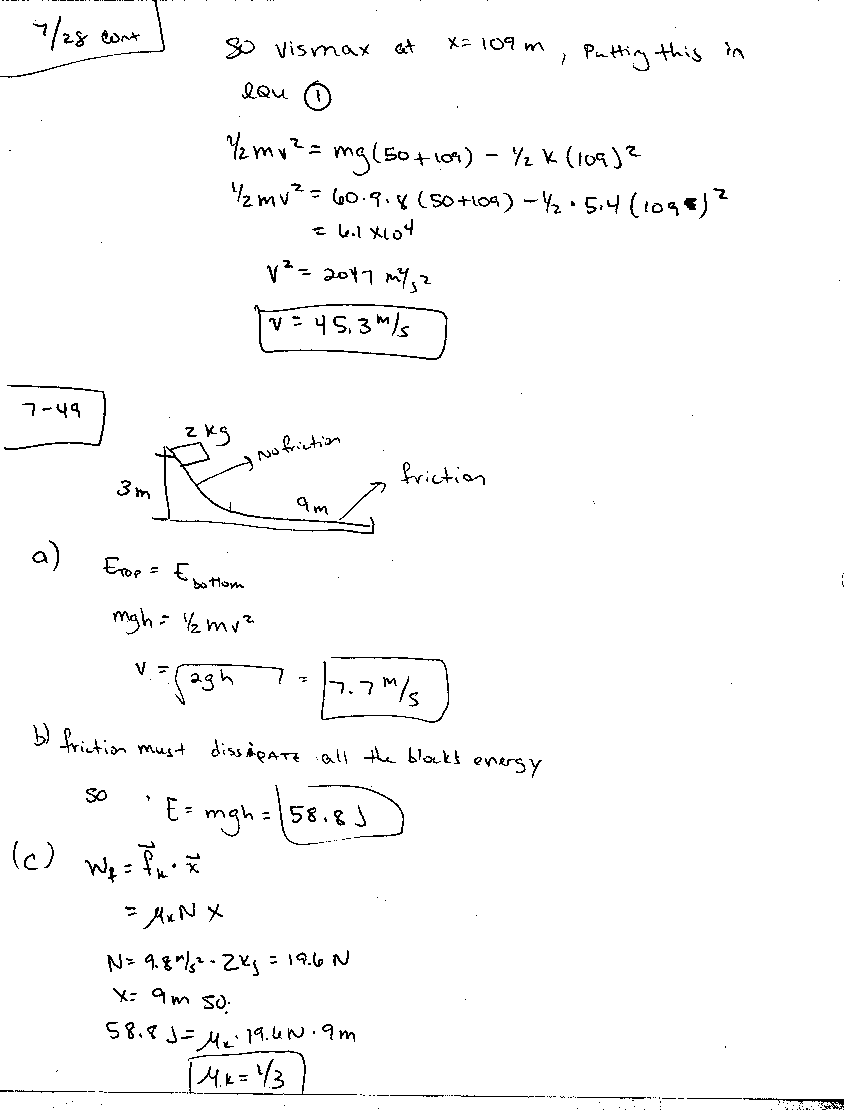 7/28 cont
So v is max at x=109 m, Putting this in
equ ①
½mv² = mg(50+109) - ½ k (109)²
½mv² = 60·9.8 (50+109) - ½ · 5.4 (109)²
= 6.1 x10⁴
v² = 2047 m²/s²
v = 45.3 m/s
7-49
2 kg
No friction
friction
3m
9m
a) ETOP = E bottom
mgh = ½mv²
v = √2gh = 7.7 m/s
b) friction must dissipATE all the blocks energy
so E = mgh = 58.8 J
(c) Wf = f⃗k · x⃗
= μkN x
N = 9.8 m/s² · 2kg = 19.6 N
x = 9m so:
58.8 J = μk · 19.6N · 9m
μk = 1/3